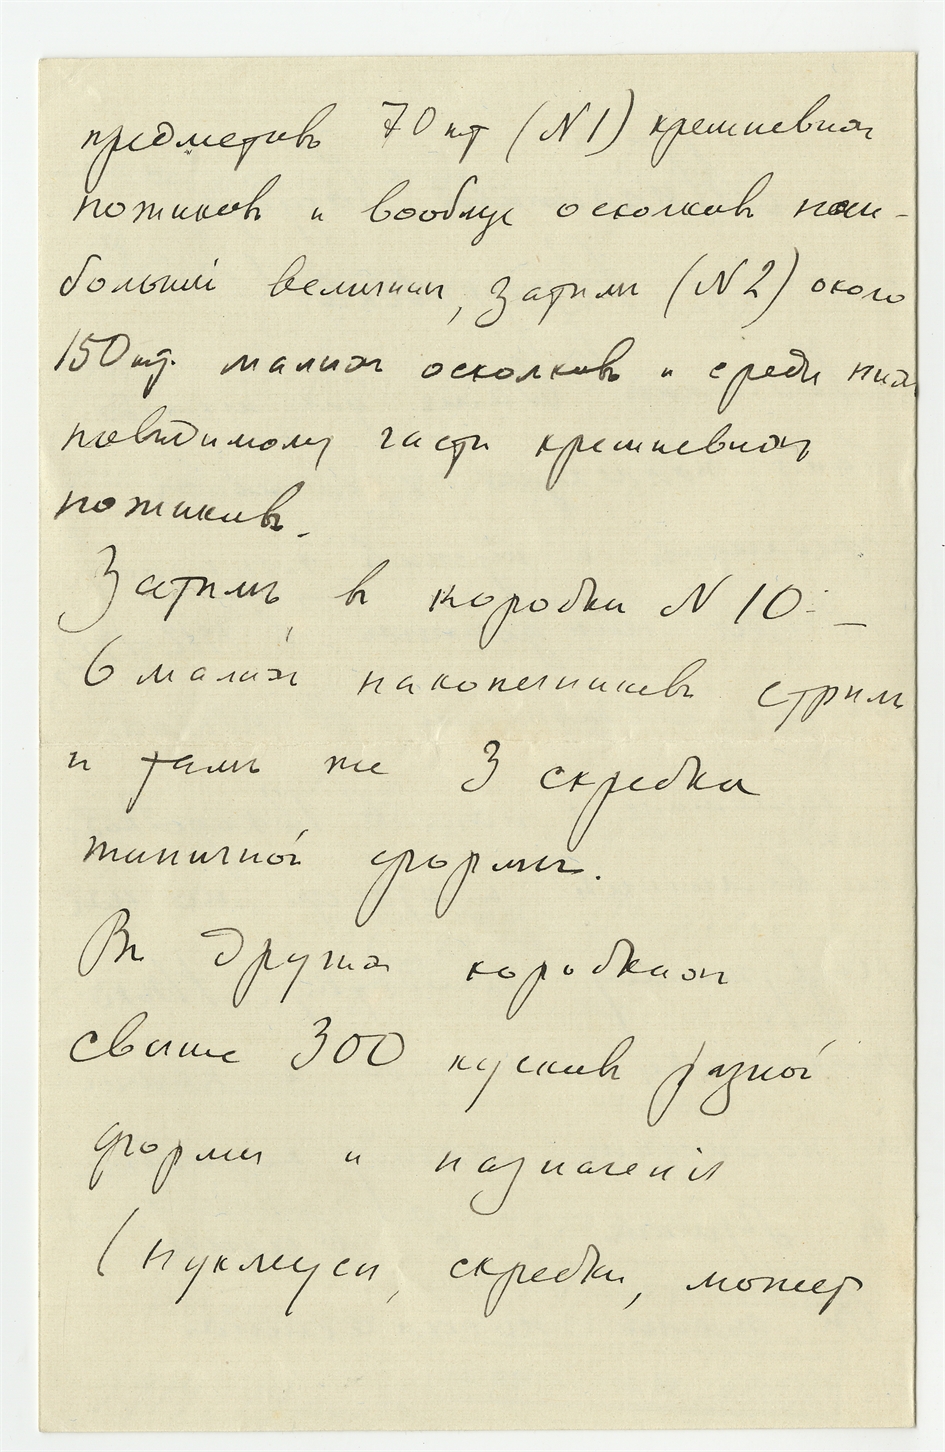 предметовъ 70 шт (N1) кремневых
ножиков и вообще осколковъ наи-
большей величины, затѣмъ (N2) около
150 шт. малых осколковъ и среди них
повидимому части кремневых
ножиковъ.
Затѣмъ в коробки N 10: —
6 малых наконечниковъ стрѣлъ
и тамъ же 3 скребка
типичной формы.
В других коробках
свыше 300 кусковъ разной
формы и назначенія
(нуклеусы, скребки, может